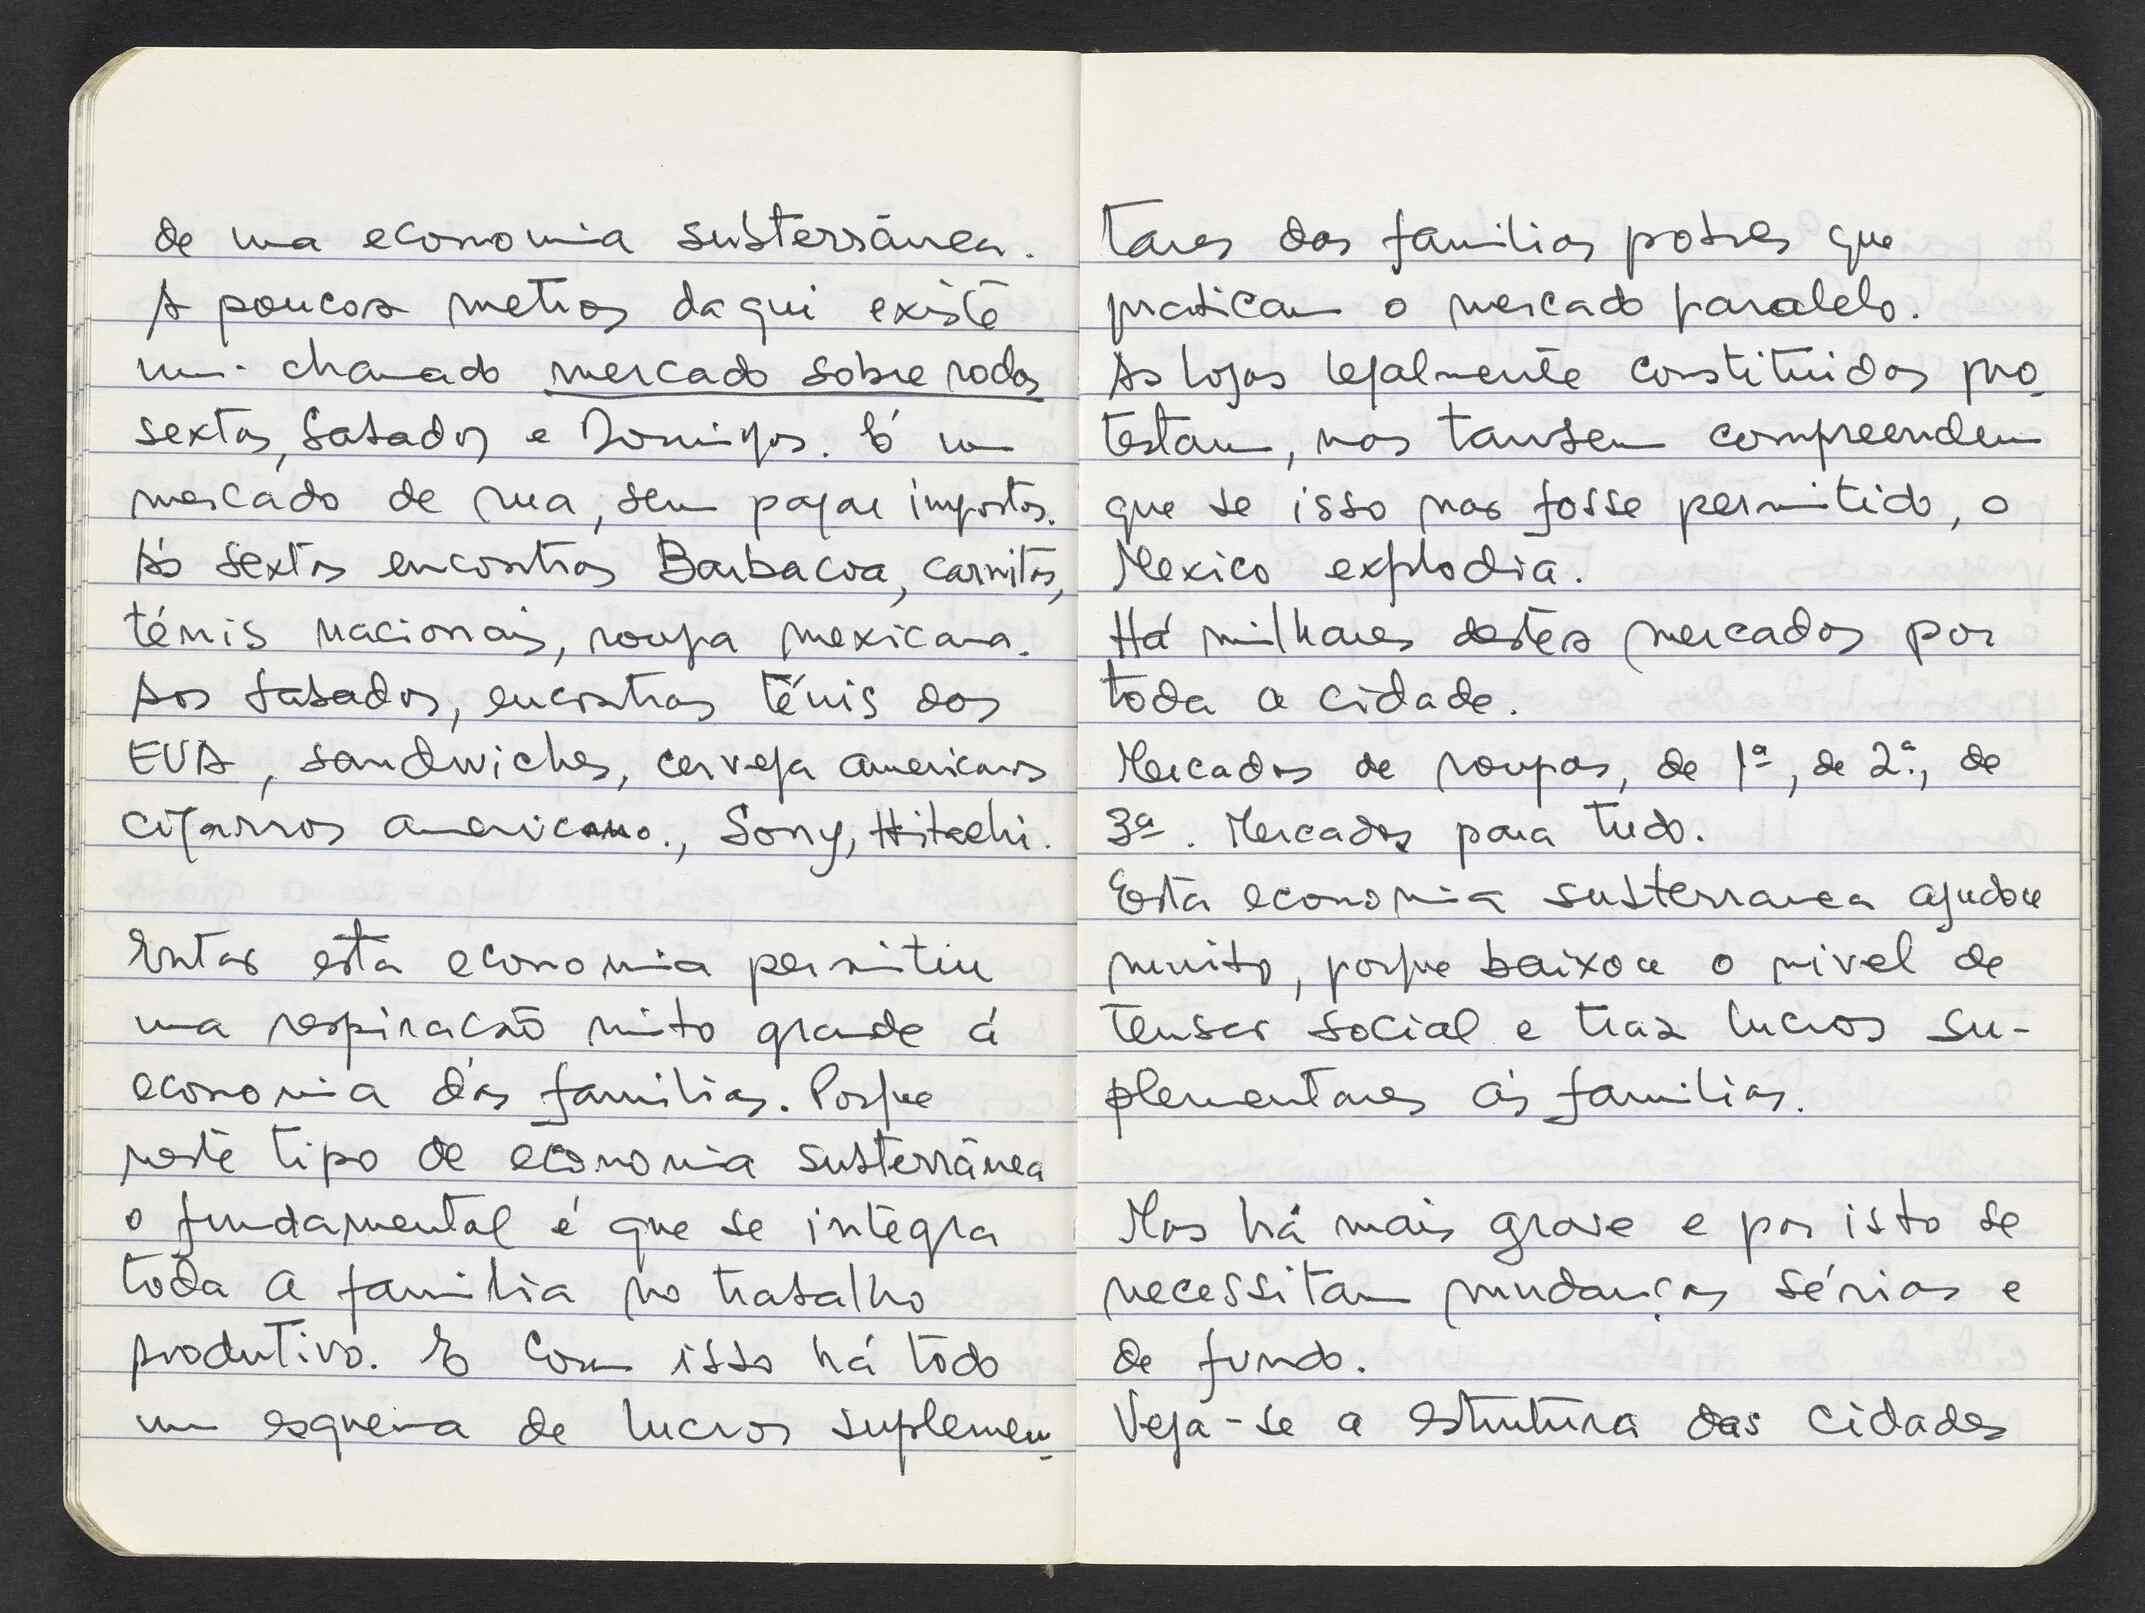 de uma economia subterrânea.
A poucos metros daqui existe
um chamado mercado sobre rodas
sextas, Sabados e Domingos. É um
mercado de rua, sem pagar impostos.
Ás sextas encontras Barbacoa, carnitas,
ténis nacionais, roupa mexicana.
Aos sabados, encontras ténis dos
EUA, sandwiches, cerveja americanos
cigarros americano., Sony, Hitachi.
Entao esta economia permitiu
uma respiracão muito grande á
economia das familias. Porque
neste tipo de economia subterrânea
o fundamental é que se integra
toda a familia no trabalho
produtivo. E com isso há todo
um esquema de lucros suplemen-
tares das familias pobres que
praticam o mercado paralelo.
As lojas legalmente constituidas pro-
testam, mas tambem compreendem
que se isso nao fosse permitido, o
Mexico explodia.
Há milhares destes mercados por
toda a cidade.
Mercados de roupas, de 1ª, de 2ª, de
3ª. Mercados para tudo.
Esta economia subterranea ajudou
muito, porque baixou o nivel de
tensao social e traz lucros su-
plementares ás familias.
Mas há mais grave e por isto se
necessitam mudanças sérias e
de fundo.
Veja-se a estrutura das cidades